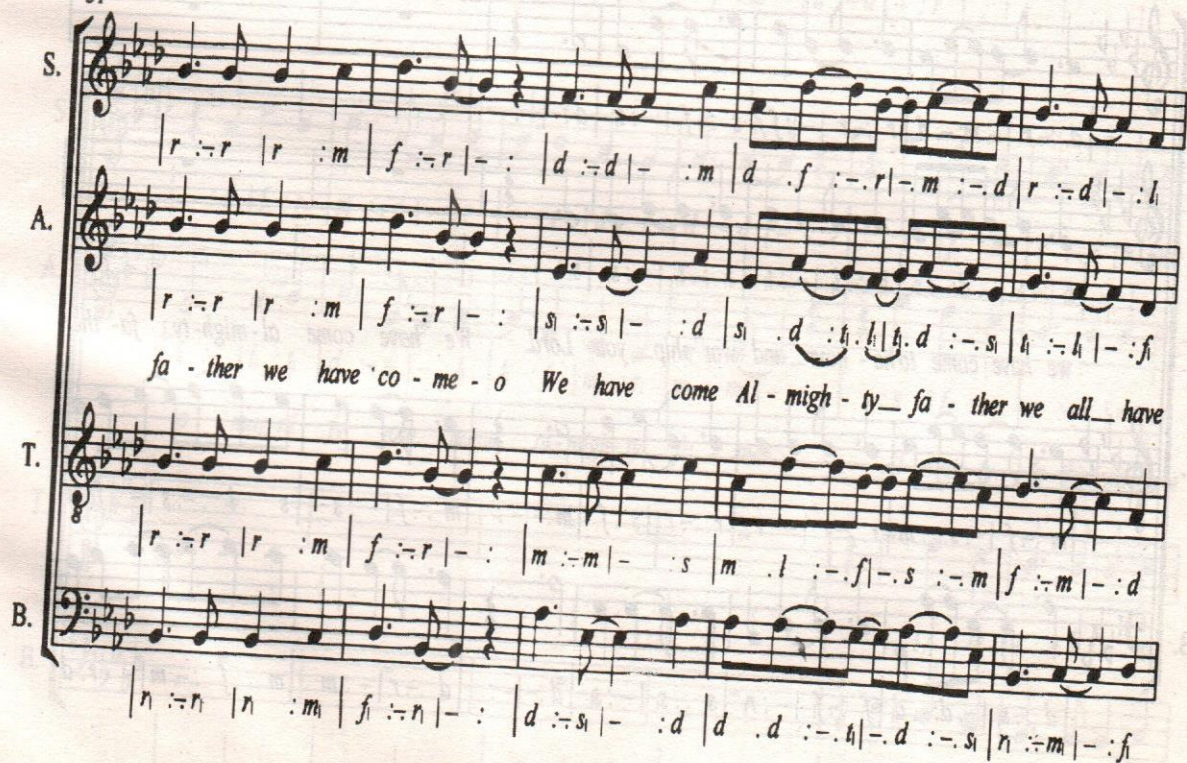 S.
|r :-.r |r :m |f :-.r|- : |d :-.d|- :m |d .f :-.r|-.m :-.d |r :-.d |-:l₁
A.
|r :-.r |r :m |f :-.r|- : |s₁ :-.s₁|- :d |s₁ .d :t₁.l₁|t₁.d :-.s₁|t₁ :-.l₁|-:f₁
fa - ther we have co - me - o We have come Al - migh - ty_ fa - ther we all_ have
T.
8
|r :-.r |r :m |f :-.r|- : |m :-.m|- :s |m .l :-.f|-.s :-.m|f :-.m|-:d
B.
|r₁ :-.r₁ |r₁ :m₁ |f₁ :-.r₁|- : |d :-.s₁|- :d |d .d :-.t₁|-.d :-.s₁|r₁ :-.m₁|-:f₁